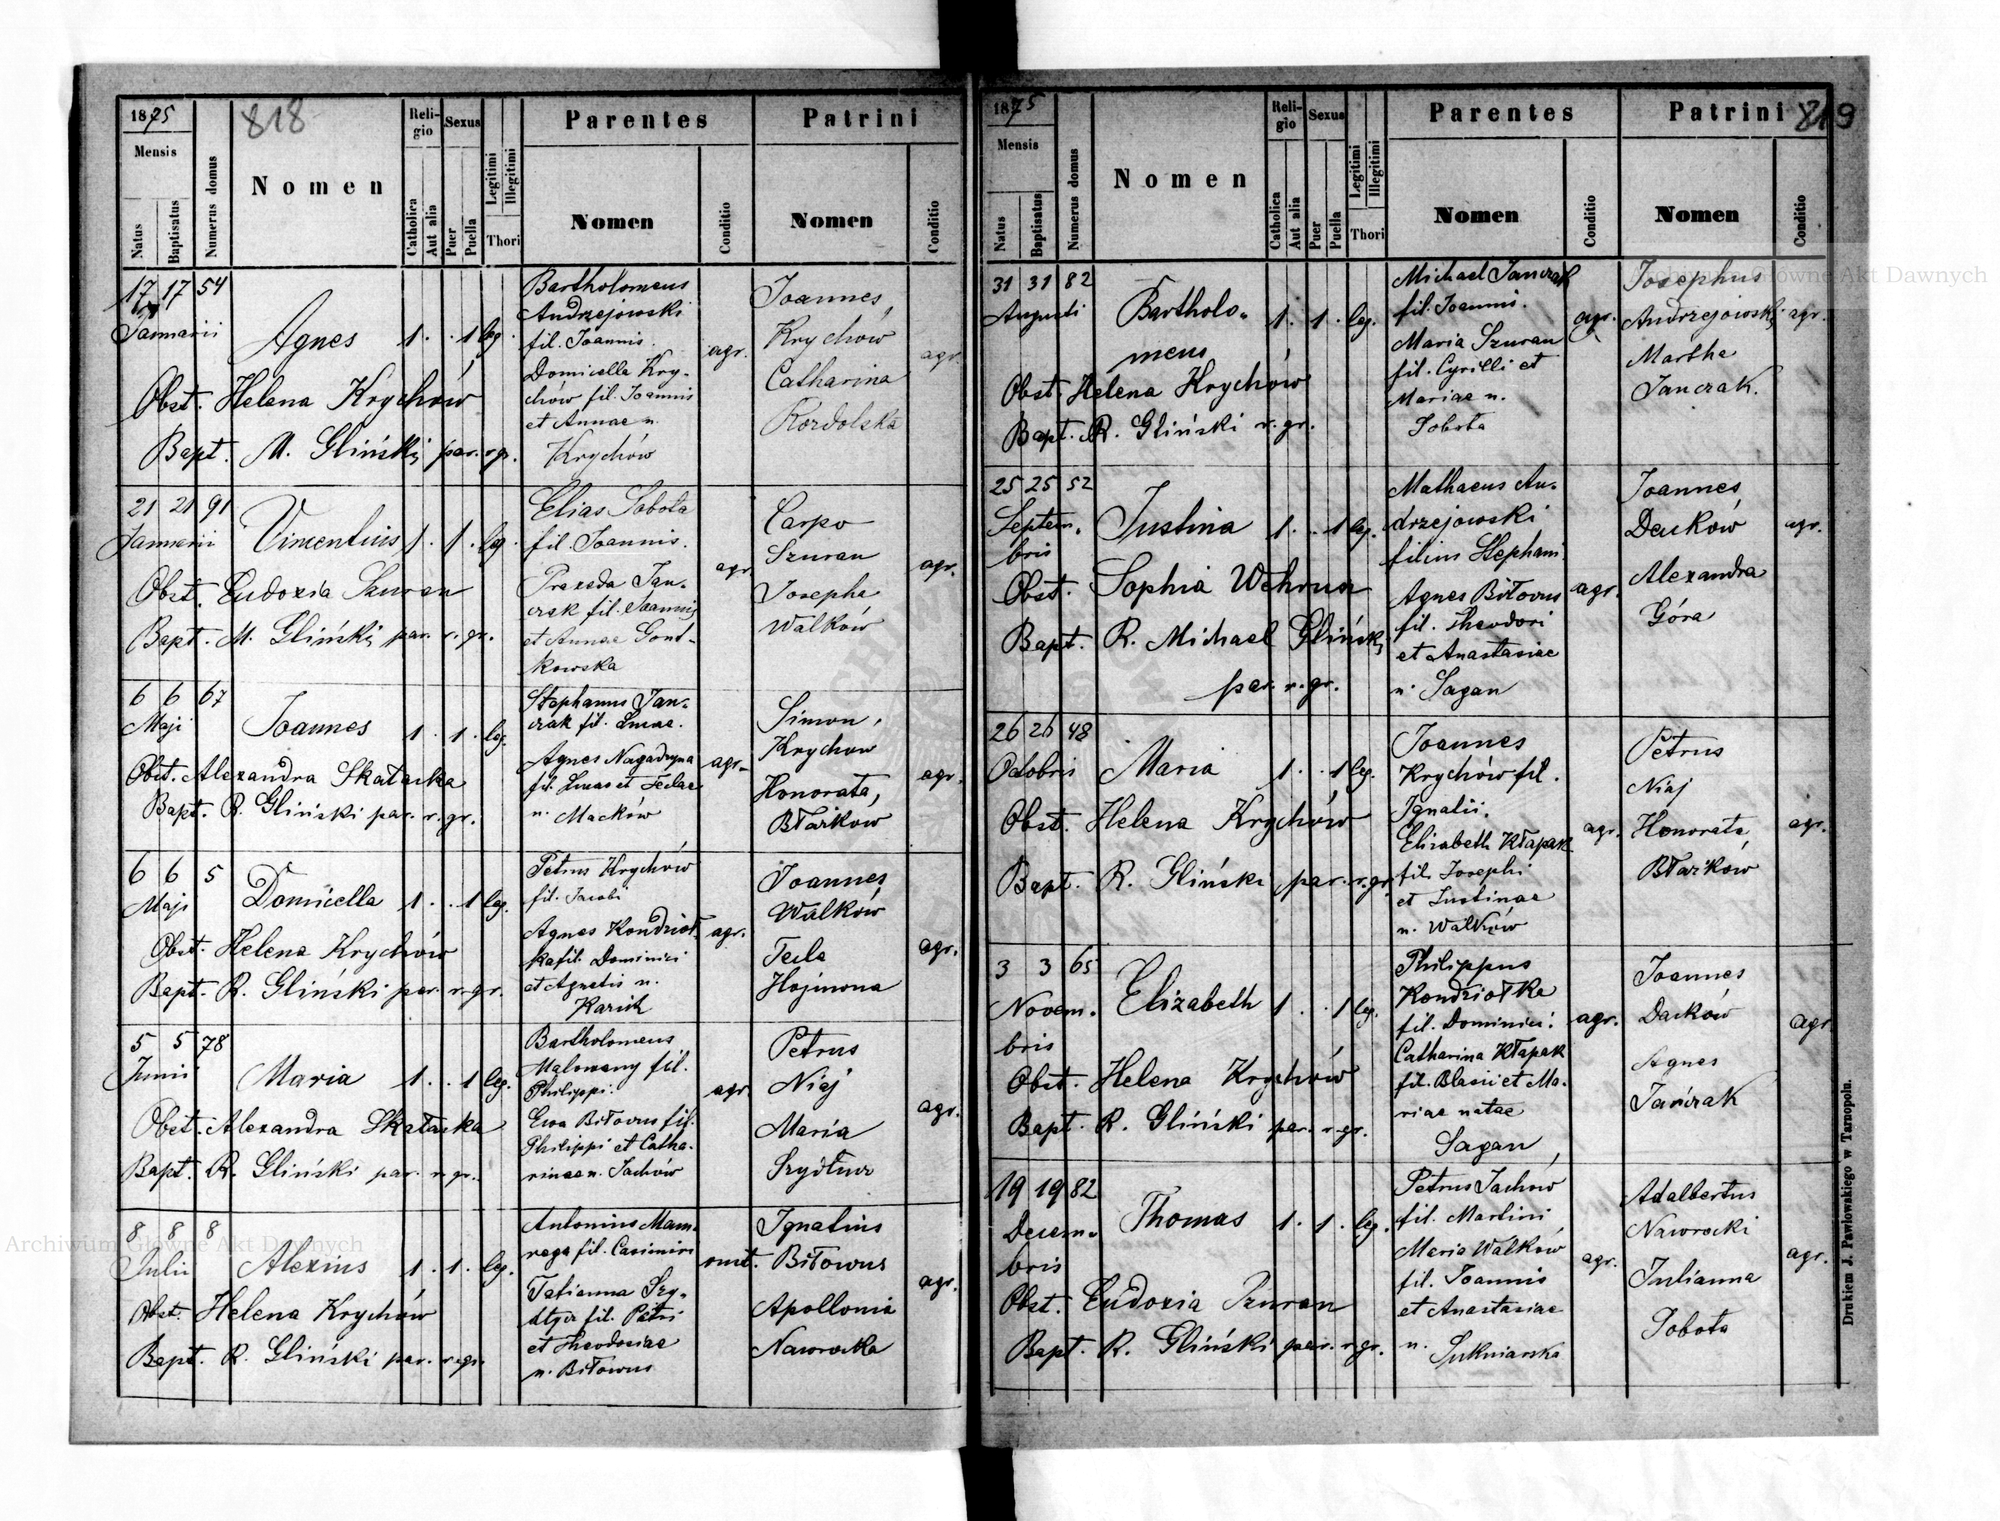 1875
818
Religio
Sexus
Parentes
Patrini
Mensis
Nomen
Legitimi
Illegitimi
Natus
Baptisatus
Numerus domus
Catholica
Aut alia
Puer
Puella
Thori
Nomen
Conditio
Nomen
Conditio
17 17 54
Januarii
Agnes 1. . 1 leg.
Bartholomeus
Andrzejowski
fil. Joannis.
Domicella Kry-
chów fil. Joannis
et Annae n.
Krychów
agr.
Joannes,
Krychów
Catharina
Kozdolska
agr.
Obst. Helena Krychów
Bapt. M. Gliński par. r. gr.
21 21 91
Januarii
Vincentius 1. 1. leg.
Elias Sobota
fil. Joannis.
Praxeda Jan-
czak fil. Joannis
et Annae Gont-
kowska
agr.
Carpo
Szuran
Josepha
Walków
agr.
Obst. Eudoxia Szuran
Bapt. M. Gliński par. r. gr.
6 6 67
Maji
Joannes 1. 1. leg.
Stephanus Jan-
czak fil. Lucae.
Agnes
fil. Lucae et Teclae
n. Macków
agr.
Simon,
Krychow
Honorata,
Błażkow
agr.
Obst. Alexandra Skałacka
Bapt. R. Gliński par. r. gr.
6 6 5
Maji
Domicella 1. . 1 leg.
Petrus Krychów
fil. Jacobi
Agnes Kondzioł-
ka fil. Dominici
et Agnetis n.
agr.
Joannes
Walków
Tecla
agr.
Obst. Helena Krychów
Bapt. R. Gliński par. r. gr.
5 5 78
Junii
Maria 1. . 1 leg.
Bartholomeus
Malowany fil.
Philippi.
Ewa Biłowus fil.
Philippi et Catha-
rinae n. Jachów
agr.
Petrus
Niaj
Maria
agr.
Obst. Alexandra Skałacka
Bapt. R. Gliński par. r. gr.
8 8 8
Julii
Alexius 1. 1. leg.
Antonius Mam-
rega fil. Casimiri
Tatianna Szy-
fil. Petri
et Theodosiae
n. Biłowus
Ignatius
Biłowus
Apollonia
Nawrocka
agr.
Obst. Helena Krychów
Bapt. R. Gliński par. r. gr.
1875
819
Religio
Sexus
Parentes
Patrini
Mensis
Nomen
Legitimi
Illegitimi
Natus
Baptisatus
Numerus domus
Catholica
Aut alia
Puer
Puella
Thori
Nomen
Conditio
Nomen
Conditio
31 31 82
Augusti
Bartholo-
meus
1. 1. leg.
Michael Janczak
fil. Joannis.
Maria Szuran
fil. Cyrilli et
Mariae n.
Sobota
agr.
Josephus
Andrzejowski
Martha
Janczak.
agr.
Obst. Helena Krychów
Bapt. R. Gliński r. gr.
25 25 52
Septem-
bris
Justina 1. . 1 leg.
Mathaeus An-
drzejowski
filius Stephani
Agnes Biłowus
fil. Theodori
et Anastasiae
n. Sagan
agr.
Joannes
Daćków
Alexandra
Góra
agr.
Obst. Sophia Wehrun
Bapt. R. Michael Gliński
par. r. gr.
26 26 48
Octobris
Maria 1. . 1 leg.
Joannes
Krychów fil.
Ignatii.
Elizabeth Kłapak
fil. Josephi
et Justinae
n. Walków
agr.
Petrus
Niaj
Honorata
Błażków
agr.
Obst. Helena Krychów
Bapt. R. Gliński par. r. gr.
3 3 65
Novem-
bris
Elizabeth 1. . 1 leg.
Philippus
Kondziołka
fil. Dominici.
Catharina Kłapak
fil. Blasii et Ma-
riae natae
Sagan,
agr.
Joannes
Daćków
Agnes
Jańczak
agr.
Obst. Helena Krychów
Bapt. R. Gliński par. r. gr.
19 19 82
Decem-
bris
Thomas 1. 1. leg.
Petrus Jachów
fil. Martini
Maria Walków
fil. Joannis
et Anastasiae
n.
Sukniarska
agr.
Adalbertus
Nawrocki
Julianna
Sobota
agr.
Obst. Eudoxia Szuran
Bapt. R. Gliński par. r. gr.
Drukiem J. Pawłowskiego w Tarnopolu.
Archiwum Główne Akt Dawnych
Archiwum Główne Akt Dawnych